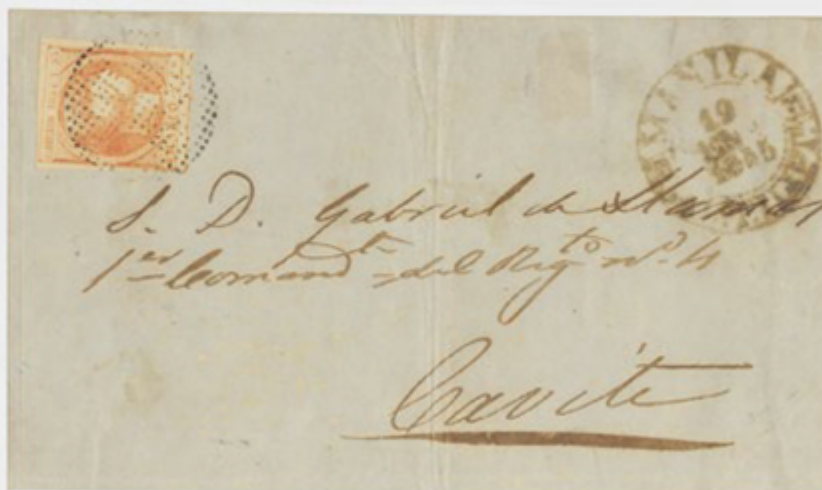 MANILA
19
1855
S. D. Gabriel de Llamas
1er Comandte del Regto nº. 4
Cavite